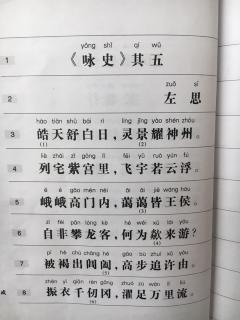 yǒng shǐ qí wǔ
1 《咏史》其五
zuǒ sī
2 左 思
hào tiān shū bái rì, líng jǐng yào shén zhōu
3 皓天舒白日，灵景耀神州。
(1) (2)
liè zhái zǐ gōng lǐ fēi yǔ ruò yún fú
4 列宅紫宫里，飞宇若云浮。
é é gāo mén nèi ǎi ǎi jiē wáng hóu
5 峨峨高门内，蔼蔼皆王侯。
zì fēi pān lóng kè hé wèi xū lái yóu
6 自非攀龙客，何为欻来游？
(3) (4)
pī hè chū chāng hé gāo bù zhuī xǔ yóu
7 被褐出阊阖，高步追许由。
(5)
zhèn yī qiān rèn gāng zhuó zú wàn lǐ liú
8 振衣千仞冈，濯足万里流。
(6)